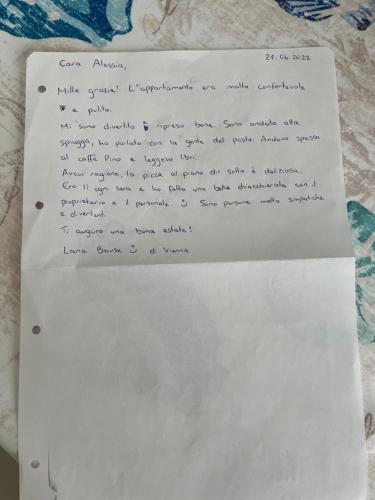 Cara Alessia, 21.06.2022
Mille grazie! L'appartamento era molto confortevole
e pulito.
Mi sono divertito ripreso bene. Sono andato alla
spiagga, ho parlato con la gente del posto. Andavo spesso
al caffè Pino e leggevo libri.
Avevi ragione, la pizza al piano dir sotto è deliziosa.
Ero lì ogni sera e ho fatto una bella chiacchierata con il
proprietario e il personale. Sono persone molto simpatiche
e divertenti.
Ti auguro una bona estate!
Lana Bause di Vienna